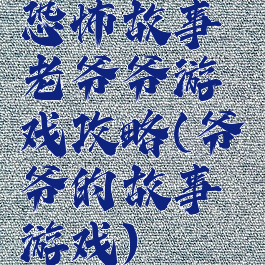 恐怖故事
老爷爷游
戏攻略(爷
爷的故事
游戏)